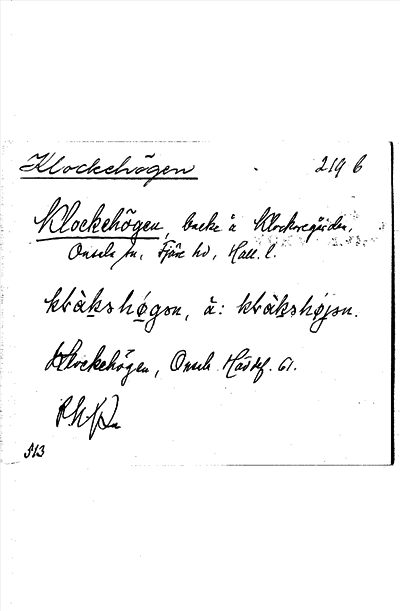 Klockehögen 219 b
Klockehögen, backe å Klockaregården,
Onsala sn, Fjäre hd, Hall. l.
kråkshøgən, ä: kråkshøjən.
Klockehögen, Onsala
513